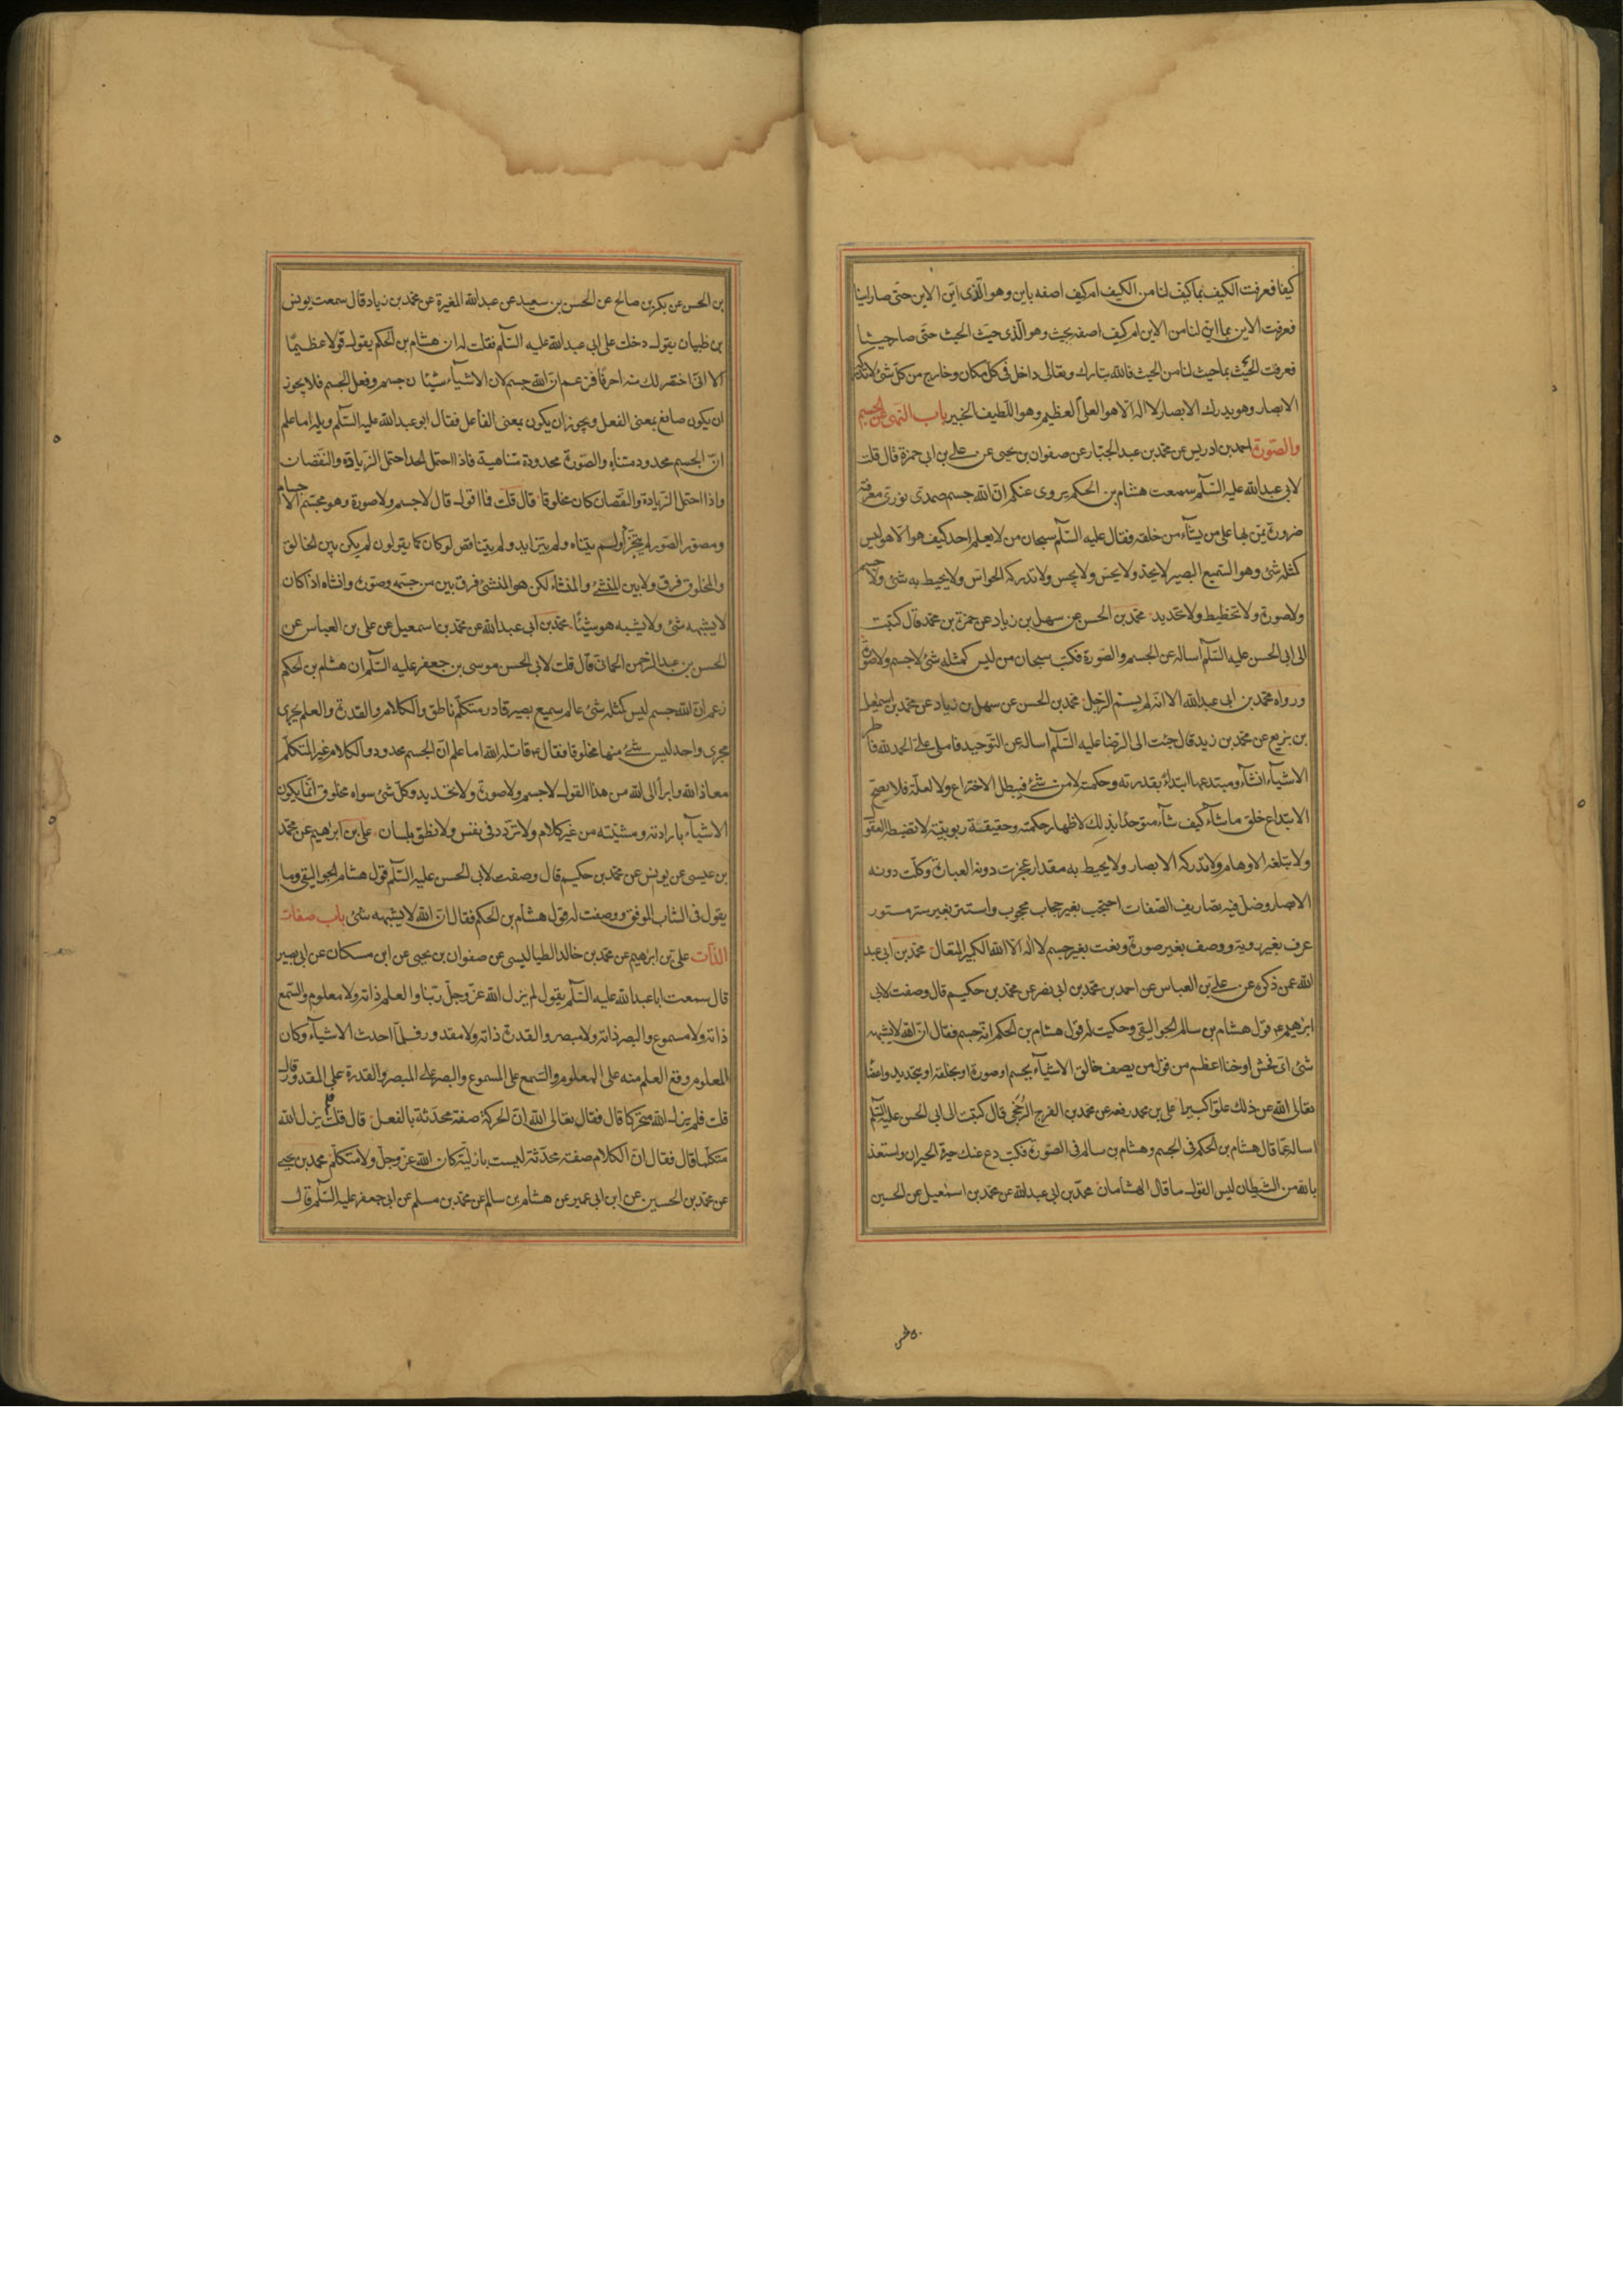 كيفا فعرفت الكيف بما كيف لنا من الكيف ام كيف اصفه باين وهو الذى اين الاين حتى صار اينا
فعرفت الاين بما اين لنا من الاين ام كيف اصفه بحيث وهو الذى حيث الحيث حتى صار حيثا
فعرفت الحيث بما حيث لنا من الحيث فالله تبارك وتعالى داخل فى كل مكان وخارج من كل شئ لا تدركه
الابصار وهو يدرك الابصار لا اله الا هو العلى العظيم وهو اللطيف الخبير باب النهى عن الجسم
والصورة احمد بن ادريس عن محمد بن عبد الجبار عن صفوان بن يحيى عن على بن ابى حمزة قال قلت
لابى عبد الله عليه السلم سمعت هشام بن الحكم يروى عنكم ان الله جسم صمدى نورى معرفته
ضرورة يمن بها على من يشاء من خلقه فقال عليه السلم سبحان من لا يعلم احد كيف هو الا هو ليس
كمثله شئ وهو السميع البصير لا يحد ولا يحس ولا يجس ولا تدركه الحواس ولا يحيط به شئ ولا جسم
ولا صورة ولا تخطيط ولا تحديد محمد بن الحسن عن سهل بن زياد عن حمزة بن محمد قال كتبت
الى ابى الحسن عليه السلم اساله عن الجسم والصورة فكتب سبحان من ليس كمثله شئ لا جسم ولا صورة
ورواه محمد بن ابى عبد الله الا انه لم يسم الرجل محمد بن الحسن عن سهل بن زياد عن محمد بن اسمعيل
بن بزيع عن محمد بن زيد قال جئت الى الرضا عليه السلم اساله عن التوحيد فاملى على الحمد لله فاطر
الاشياء انشاء ومبتدعها ابتداء بقدرته وحكمته لا من شئ فيبطل الاختراع ولا لعلة فلا يصح
الابتداع خلق ما شاء كيف شاء متوحدا بذلك لاظهار حكمته وحقيقة ربوبيته لا تضبطه العقول
ولا تبلغه الاوهام ولا تدركه الابصار ولا يحيط به مقدار عجزت دونه العبارة وكلت دونه
الابصار وضل فيه تصاريف الصفات احتجب بغير حجاب محجوب واستتر بغير ستر مستور
عرف بغير روية ووصف بغير صورة ونعت بغير جسم لا اله الا الله الكبير المتعال محمد بن ابى عبد
الله عمن ذكره عن على بن العباس عن احمد بن محمد بن ابى نصر عن محمد بن حكيم قال وصفت لابى
ابرهيم ع قول هشام بن سالم الجواليقى وحكيت له قول هشام بن الحكم انه جسم فقال ان الله لا يشبهه
شئ اى فحش او خنا اعظم من قول من يصف خالق الاشياء بجسم او صورة او بخلقة او بتحديد واعضا
تعالى الله عن ذلك علوا كبيرا على بن محمد رفعه عن محمد بن الفرج الرخجى قال كتبت الى ابى الحسن عليه السلم
اساله عما قال هشام بن الحكم فى الجسم وهشام بن سالم فى الصورة فكتب دع عنك حيرة الحيران واستعذ
بالله من الشيطان ليس القول ما قال الهشامان محمد بن ابى عبد الله عن محمد بن اسمعيل عن الحسين
بن الحسن عن بكر بن صالح عن الحسن بن سعيد عن عبد الله المغيرة عن محمد بن زياد قال سمعت يونس
بن ظبيان يقول دخلت على ابى عبد الله عليه السلم فقلت له ان هشام بن الحكم يقول قولا عظيما
الا انى اختصر لك منه احرفا فزعم ان الله جسم لان الاشياء شيئان جسم وفعل الجسم فلا يجوز
ان يكون صانع بمعنى الفعل ويجوز ان يكون بمعنى الفاعل فقال ابو عبد الله عليه السلم ويله اما علم
ان الجسم محدود متناه والصورة محدودة متناهية فاذا احتمل الحد احتمل الزيادة والنقصان
واذا احتمل الزيادة والنقصان كان مخلوقا قال قلت فما اقول قال لا جسم ولا صورة وهو مجسم الاجسام
ومصور الصور لم يتجزأ ولم يتناه ولم يتزايد ولم يتناقص لو كان كما يقولون لم يكن بين الخالق
والمخلوق فرق ولا بين المنشئ والمنشاء لكن هو المنشئ فرق بين من جسمه وصوره وانشاه اذ كان
لا يشبهه شئ ولا يشبه هو شيئا محمد بن ابى عبد الله عن محمد بن اسمعيل عن على بن العباس عن
الحسن بن عبد الرحمن الحمانى قال قلت لابى الحسن موسى بن جعفر عليه السلم ان هشام بن الحكم
زعم ان الله جسم ليس كمثله شئ عالم سميع بصير قادر متكلم ناطق والكلام والقدرة والعلم يجرى
مجرى واحد ليس شئ منها مخلوقا فقال ع قاتله الله اما علم ان الجسم محدود والكلام غير المتكلم
معاذ الله وابرأ الى الله من هذا القول لا جسم ولا صورة ولا تحديد وكل شئ سواه مخلوق انما يكون
الاشياء بارادته ومشيته من غير كلام ولا تردد فى نفس ولا نطق بلسان على بن ابرهيم عن محمد
بن عيسى عن يونس عن محمد بن حكيم قال وصفت لابى الحسن عليه السلم قول هشام الجواليقى وما
يقول فى الشاب الموفق ووصفت له قول هشام بن الحكم فقال ان الله لا يشبهه شئ باب صفات
الذات على بن ابرهيم عن محمد بن خالد الطيالسى عن صفوان بن يحيى عن ابن مسكان عن ابى بصير
قال سمعت ابا عبد الله عليه السلم يقول لم يزل الله عز وجل ربنا والعلم ذاته ولا معلوم والسمع
ذاته ولا مسموع والبصر ذاته ولا مبصر والقدرة ذاته ولا مقدور فلما احدث الاشياء وكان
المعلوم وقع العلم منه على المعلوم والسمع على المسموع والبصر على المبصر والقدرة على المقدور قال
قلت فلم يزل الله متحركا قال فقال تعالى الله ان الحركة صفة محدثة بالفعل قال قلت فلم يزل الله
متكلما قال فقال ان الكلام صفة محدثة ليست بازلية كان الله عز وجل ولا متكلم محمد بن يحيى
عن محمد بن الحسين عن ابن ابى عمير عن هشام بن سالم عن محمد بن مسلم عن ابى جعفر عليه السلم قال